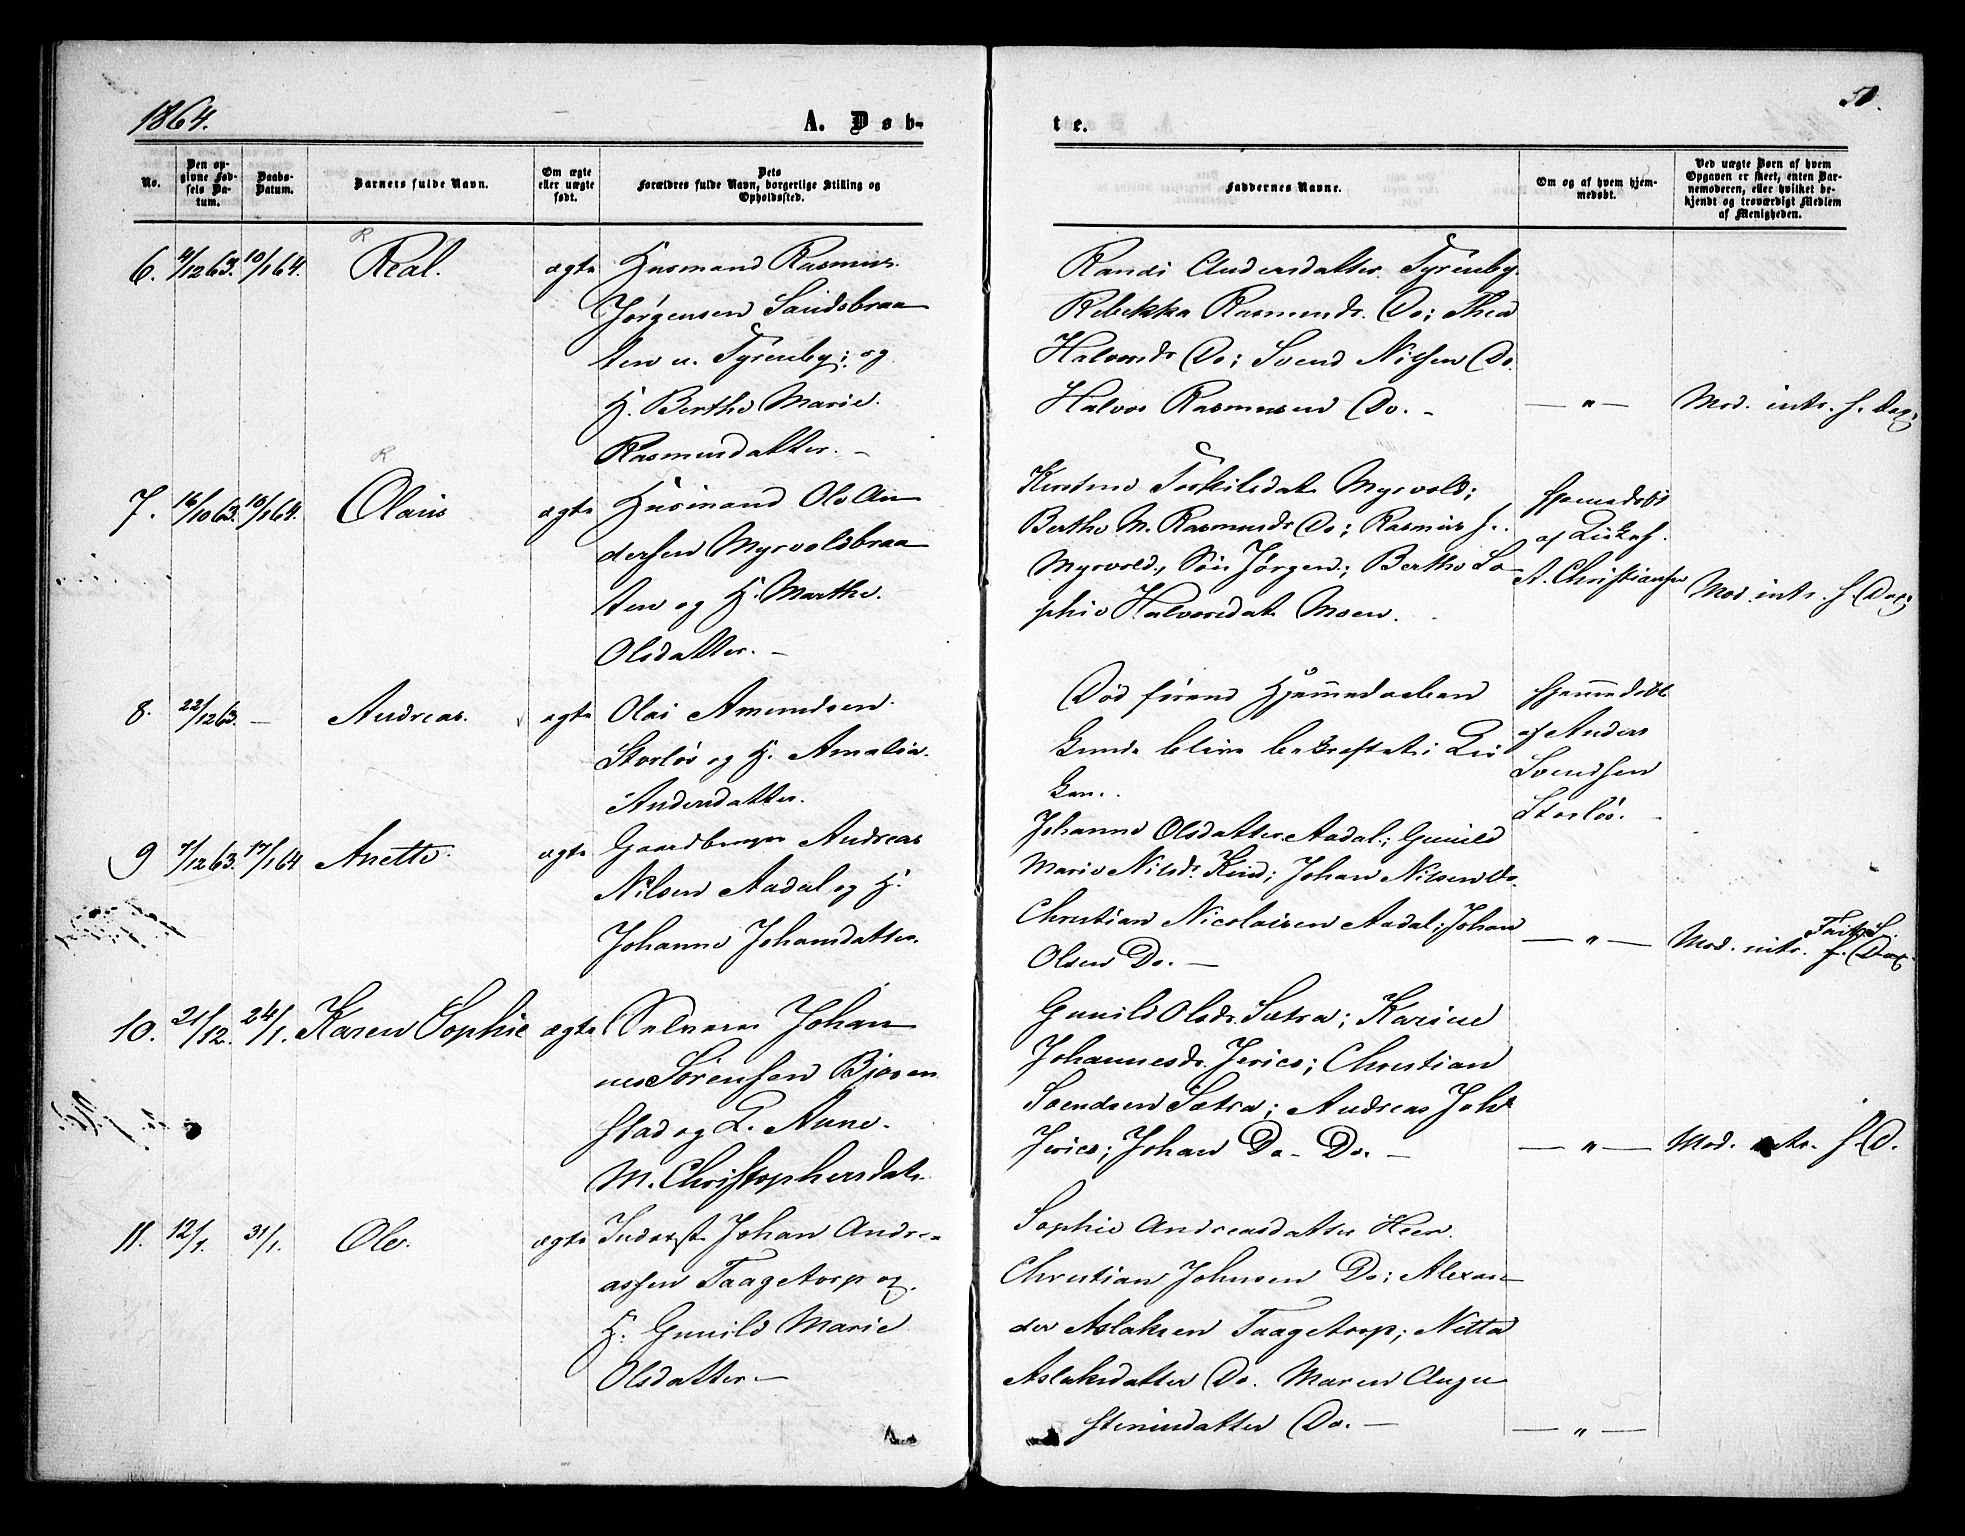 1864.
A. Døb-
te.
50.
No.
Den op-
givne Fød-
sels Da-
tum.
Daabs-
Datum.
Barnets fulde Navn.
Om ægte
eller uægte
født.
Dets
Forældres fulde Navn, borgerlige Stilling og
Opholdssted.
Faddernes Navne.
Om og af hvem hjem-
medøbt.
Ved uægte Børn af hvem
Opgaven er skeet, enten Bar-
nemoderen, eller hvilket be-
kjendt og troværdigt Medlem
af Menigheden.
6. 4/12 63. 10/1 64. Real. ægte Husmand Rasmus
Jørgensen Sandsbraa
ten u. Tyrenby; og
H. Berthe Marie
Rasmusdatter. –
Randi Andersdatter Tyrenby.
Rebekka Rasmusdr. Do; Thea
Halvorsdr Do; Svend Nilsen Do.
Halvor Rasmussen Do. –
— „ —
Mod. intr. f. Dag;
7. 16/10 63. 10/1 64. Olaus ægte Husmand Ole An
dersen Myrvoldbraa
ten og H. Marthe
Olsdatter. –
Kirstine Torkilsdat. Myrvold;
Berthe M. Rasmusdr Do; Rasmus
Myrvold, Søn Jørgen; Berthe So
phie Halvorsdat. Moen.
Hjemedøbt
af
A. Christiansen
Mod. intr. f. Dag;
8. 22/12 63. – Andreas. ægte Olai Amundsen
Storløs og H. Amalia
Andersdatter.
Död förend Hjemmedaaben
kunde blive bekræftet i Kir
ken.
Hjemmedøbt
af Anders
Svendsen
Storløs.
9 7/12 63. 17/1 64 Anette. ægte Gaardbruger Andreas
Nilsen Aadal og H.
Johanne Johansdatter.
Johanne Olsdatter Aadal; Gunild
Marie Nilsdr. Kind; Johan Nilsen Do.
Christian Nicolaisen Aadal; Johan
Olsen Do. –
— „ —
Mod. intr. f. Dag.
10. 21/12. 24/1. Karen Sophie ægte Selveier Johan
nes Sörensen Bjørn
stad og H. Anne
M. Christophersdatr.
Gunild Olsdr. Sætra; Karine
Johannesdr. Jerics; Christian
Svendsen Sætra; Andreas Joh
Jerics; Johan Do. Do. –
— „ —
Mod. intr. f. D.
11. 12/1. 31/1. Ole. ægte Inderst Johan Andre-
assen Taagetorp og
H. Gunild Marie
Olsdatter –
Sophie Andreasdatter Heer.
Christian Johnsen Do; Alexan
der Aslaksen Taagetorp; Netta
Aslaksdatter Do. Maren Augu
stinusdatter Do. –
— „ —